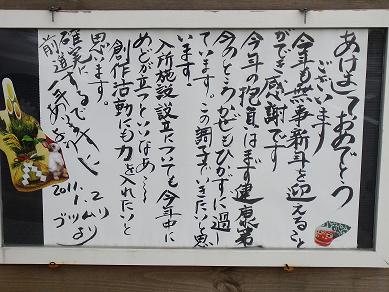 あけましておめでとう
ございます
今年も無事新年を迎えること
ができ感謝です
今年の抱負はまず健康第一
今のところかぜもひかずに過し
ています。この調子でいきたいと思
います。
入所施設設立についても今年中に
めどが立つといいなあ〜
創作活動にも力を入れたいと
思います。
前進
2011.1.
ゴリムリより